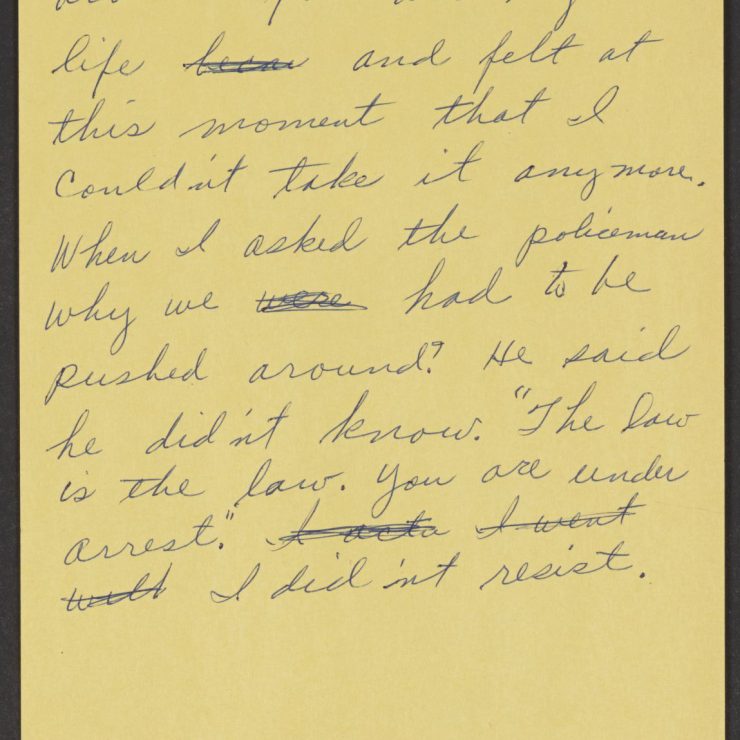 life becau and felt at
this moment that I
couldn't take it anymore.
When I asked the policeman
why we were had to be
pushed around? He said
he didn't know. "The law
is the law. You are under
arrest." I acta I went
with I did'nt resist.